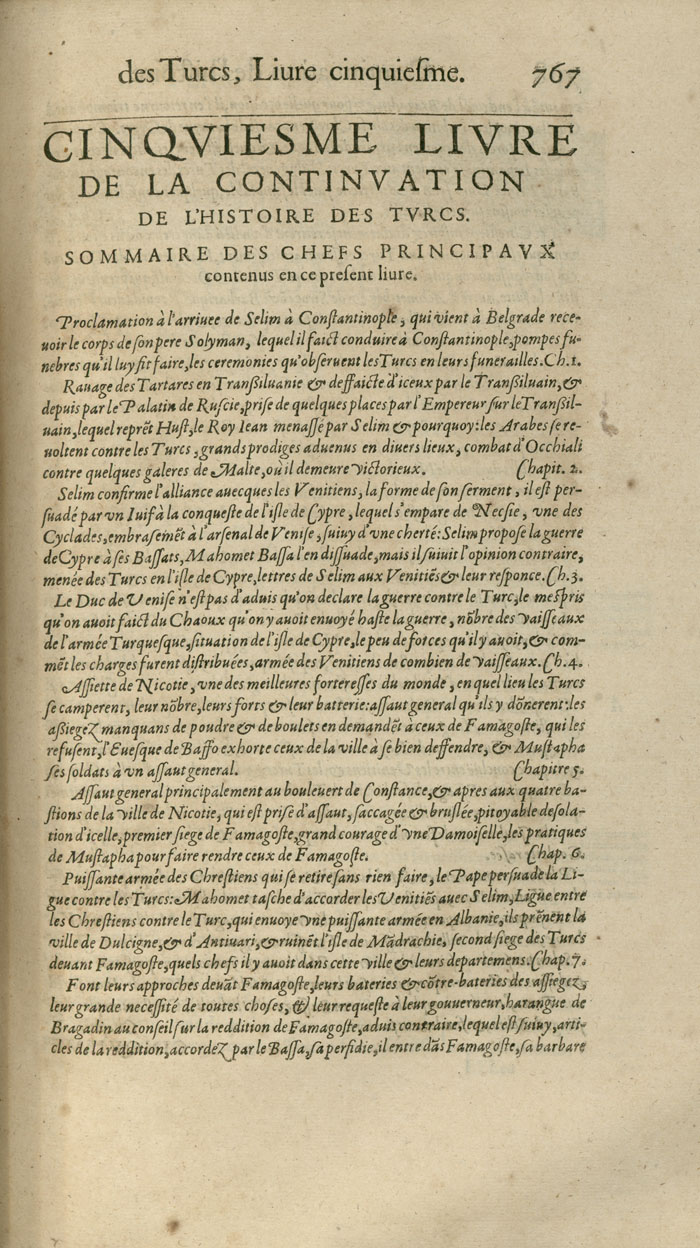 des Turcs, Liure cinquiesme. 767
CINQVIESME LIVRE
DE LA CONTINVATION
DE L'HISTOIRE DES TVRCS.
SOMMAIRE DES CHEFS PRINCIPAVX
contenus en ce present liure.
Proclamation à l'arriuee de Selim à Constantinople, qui vient à Belgrade rece-
uoir le corps de son pere Solyman, lequel il faict conduire à Constantinople, pompes fu-
nebres qu'il luy fit faire, les ceremonies qu'obseruent les Turcs en leurs funerailles. Ch. 1.
Rauage des Tartares en Transsiluanie & deffaicte d'iceux par le Transsiluain, &
depuis par le Palatin de Ruscie, prise de quelques places par l'Empereur sur le Transsil-
uain, lequel reprēt Hust, le Roy Iean menassé par Selim & pourquoy: les Arabes se re-
uoltent contre les Turcs, grands prodiges aduenus en diuers lieux, combat d'Occhiali
contre quelques galeres de Malte, où il demeure victorieux. Chapit. 2.
Selim confirme l'alliance auecques les Venitiens, la forme de son serment, il est per-
suadé par vn Iuif à la conqueste de l'isle de Cypre, lequel s'empare de Necsie, vne des
Cyclades, embrasemēt à l'arsenal de Venise, suiuy d'vne cherté: Selim propose la guerre
de Cypre à ses Bassats, Mahomet Bassa l'en dissuade, mais il suiuit l'opinion contraire,
menée des Turcs en l'isle de Cypre, lettres de Selim aux Venitiēs & leur responce. Ch. 3.
Le Duc de Venise n'est pas d'aduis qu'on declare la guerre contre le Turc, le mespris
qu'on auoit faict du Chaoux qu'on y auoit enuoyé haste la guerre, nōbre des vaisseaux
de l'armée Turquesque, situation de l'isle de Cypre, le peu de forces qu'il y auoit, & com-
mēt les charges furent distribuées, armée des Venitiens de combien de vaisseaux. Ch. 4.
Assiette de Nicotie, vne des meilleures forteresses du monde, en quel lieu les Turcs
se camperent, leur nōbre, leurs forts & leur batterie: assaut general qu'ils y dōnerent: les
assiegez manquans de poudre & de boulets en demandēt à ceux de Famagoste, qui les
refusent, l'Euesque de Baffo exhorte ceux de la ville à se bien deffendre, & Mustapha
ses soldats à vn assaut general. Chapitre 5.
Assaut general principalement au bouleuert de Constance, & apres aux quatre ba-
stions de la ville de Nicotie, qui est prise d'assaut, saccagée & bruslée, pitoyable desola-
tion d'icelle, premier siege de Famagoste, grand courage d'vne Damoiselle, les pratiques
de Mustapha pour faire rendre ceux de Famagoste. Chap. 6.
Puissante armée des Chrestiens qui se retire sans rien faire, le Pape persuade la Li-
gue contre les Turcs: Mahomet tasche d'accorder les Venitiēs auec Selim, Ligue entre
les Chrestiens contre le Turc, qui enuoye vne puissante armée en Albanie, ils prēnent la
ville de Dulcigne, & d'Antiuari, & ruinēt l'isle de Mādrachie, second siege des Turcs
deuant Famagoste, quels chefs il y auoit dans cette ville & leurs departemens. Chap. 7.
Font leurs approches deuāt Famagoste, leurs bateries & cōtre-bateries des assiegez,
leur grande necessité de toutes choses, & leur requeste à leur gouuerneur, harangue de
Bragadin au conseil sur la reddition de Famagoste, aduis contraire, lequel est suiuy, arti-
cles de la reddition, accordez par le Bassa, sa perfidie, il entre dās Famagoste, sa barbare